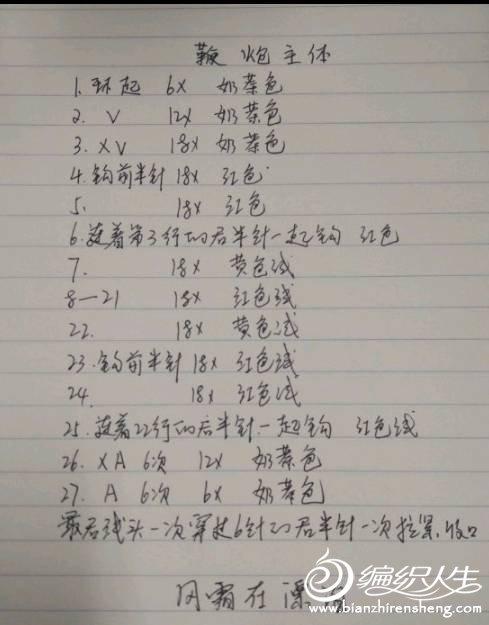 鞭炮主体
1. 环起 6X 奶茶色
2. V 12X 奶茶色
3. XV 18X 奶茶色
4. 钩前半针 18X 红色
5. 18X 红色
6. 接着第3行的后半针一起钩 红色
7. 18X 黄色线
8—21 18X 红色线
22. 18X 黄色线
23. 钩前半针 18X 红色线
24. 18X 红色线
25. 接着22行的后半针一起钩 红色线
26. XA 6次 12X 奶茶色
27. A 6次 6X 奶茶色
最后线头一次穿过6针的后半针一次拉紧.收口
风霜在
编织人生
www.bianzhirensheng.com